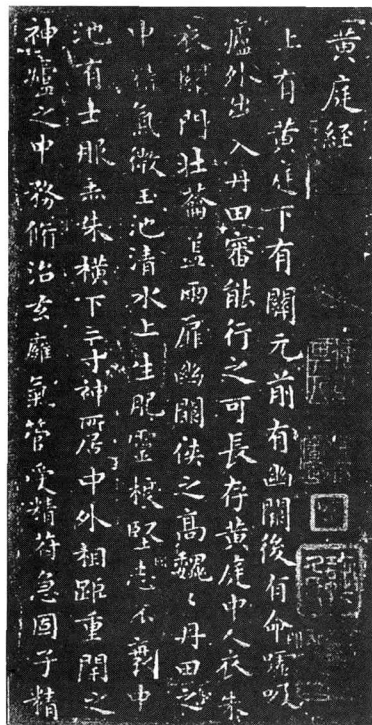 黄庭经
上有黄庭下有關元前有幽闕後有命嘘吸
廬外出入丹田審能行之可長存黄庭中人衣朱
衣關門壮蘥盖兩扉幽闕侠之高魏〻丹田之
中精氣微玉池清水上生肥靈根堅志不衰中
池有士服赤朱横下三寸神所居中外相距重閉之
神廬之中務脩治玄廱氣管受精符急固子精